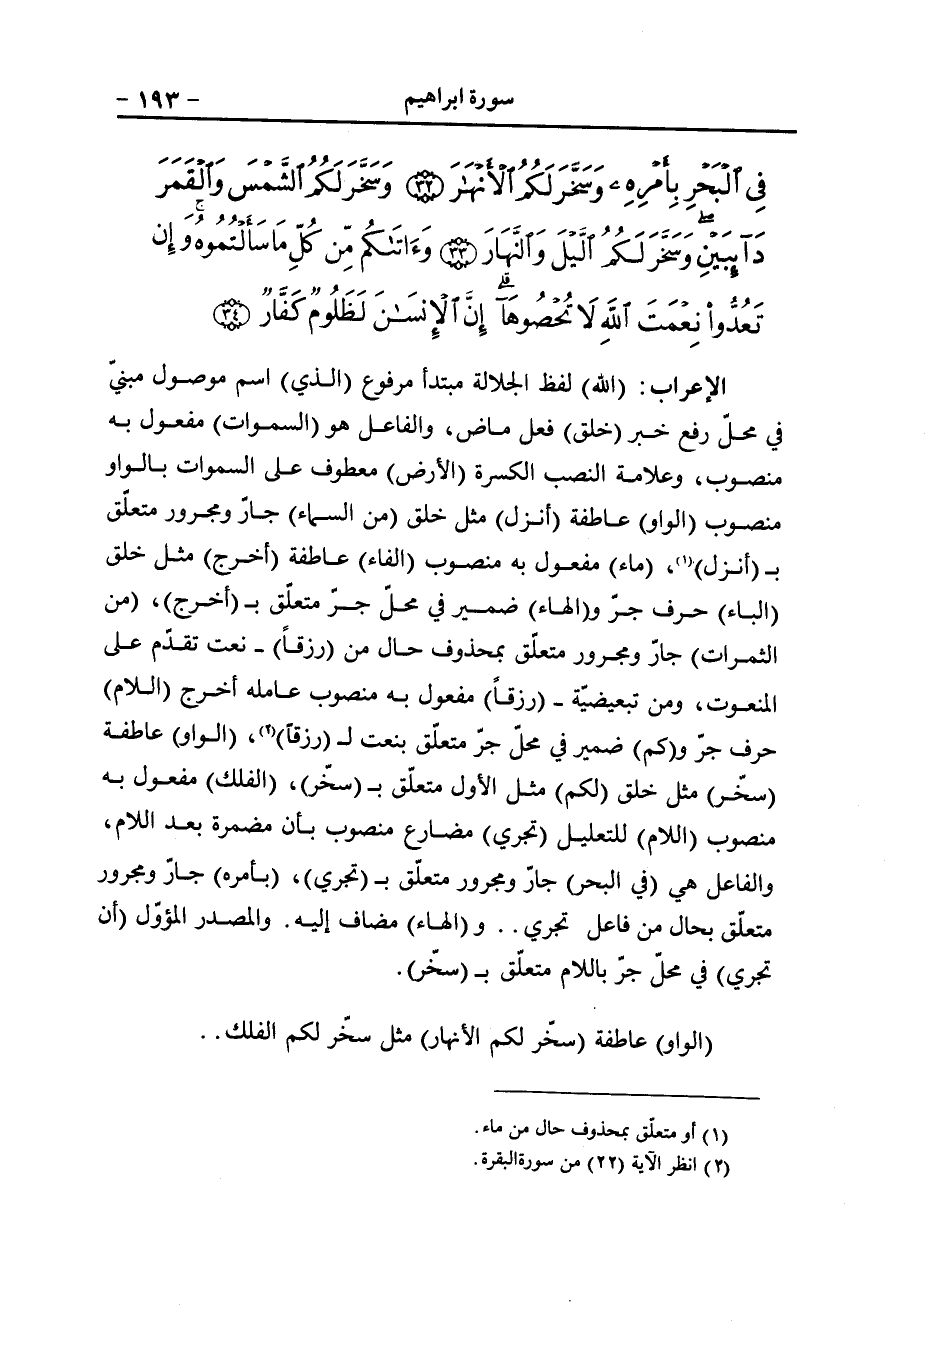 سورة ابراهيم - ١٩٣ -
فِى ٱلْبَحْرِ بِأَمْرِهِۦ وَسَخَّرَ لَكُمُ ٱلْأَنْهَٰرَ ﴿٣٢﴾ وَسَخَّرَ لَكُمُ ٱلشَّمْسَ وَٱلْقَمَرَ
دَآئِبَيْنِ ۖ وَسَخَّرَ لَكُمُ ٱلَّيْلَ وَٱلنَّهَارَ ﴿٣٣﴾ وَءَاتَىٰكُم مِّن كُلِّ مَا سَأَلْتُمُوهُ ۚ وَإِن
تَعُدُّوا۟ نِعْمَتَ ٱللَّهِ لَا تُحْصُوهَآ ۗ إِنَّ ٱلْإِنسَٰنَ لَظَلُومٌ كَفَّارٌ ﴿٣٤﴾
الإعراب: (الله) لفظ الجلالة مبتدأ مرفوع (الذي) اسم موصول مبنيّ
في محلّ رفع خبر (خلق) فعل ماض، والفاعل هو (السموات) مفعول به
منصوب، وعلامة النصب الكسرة (الأرض) معطوف على السموات بالواو
منصوب (الواو) عاطفة (أنزل) مثل خلق (من السماء) جارّ ومجرور متعلّق
بـ (أنزل)(١)، (ماء) مفعول به منصوب (الفاء) عاطفة (أخرج) مثل خلق
(الباء) حرف جرّ و(الهاء) ضمير في محلّ جرّ متعلّق بـ (أخرج)، (من
الثمرات) جارّ ومجرور متعلّق بمحذوف حال من (رزقاً) ـ نعت تقدّم على
المنعوت، ومن تبعيضيّة ـ (رزقاً) مفعول به منصوب عامله أخرج (اللام)
حرف جرّ و(كم) ضمير في محلّ جرّ متعلّق بنعت لـ (رزقاً)(٢)، (الواو) عاطفة
(سخّر) مثل خلق (لكم) مثل الأول متعلّق بـ (سخّر)، (الفلك) مفعول به
منصوب (اللام) للتعليل (تجري) مضارع منصوب بأن مضمرة بعد اللام،
والفاعل هي (في البحر) جارّ ومجرور متعلّق بـ (تجري)، (بأمره) جارّ ومجرور
متعلّق بحال من فاعل تجري.. و (الهاء) مضاف إليه. والمصدر المؤوّل (أن
تجري) في محلّ جرّ باللام متعلّق بـ (سخّر).
(الواو) عاطفة (سخّر لكم الأنهار) مثل سخّر لكم الفلك..
(١) أو متعلّق بمحذوف حال من ماء.
(٢) انظر الآية (٢٢) من سورة البقرة.